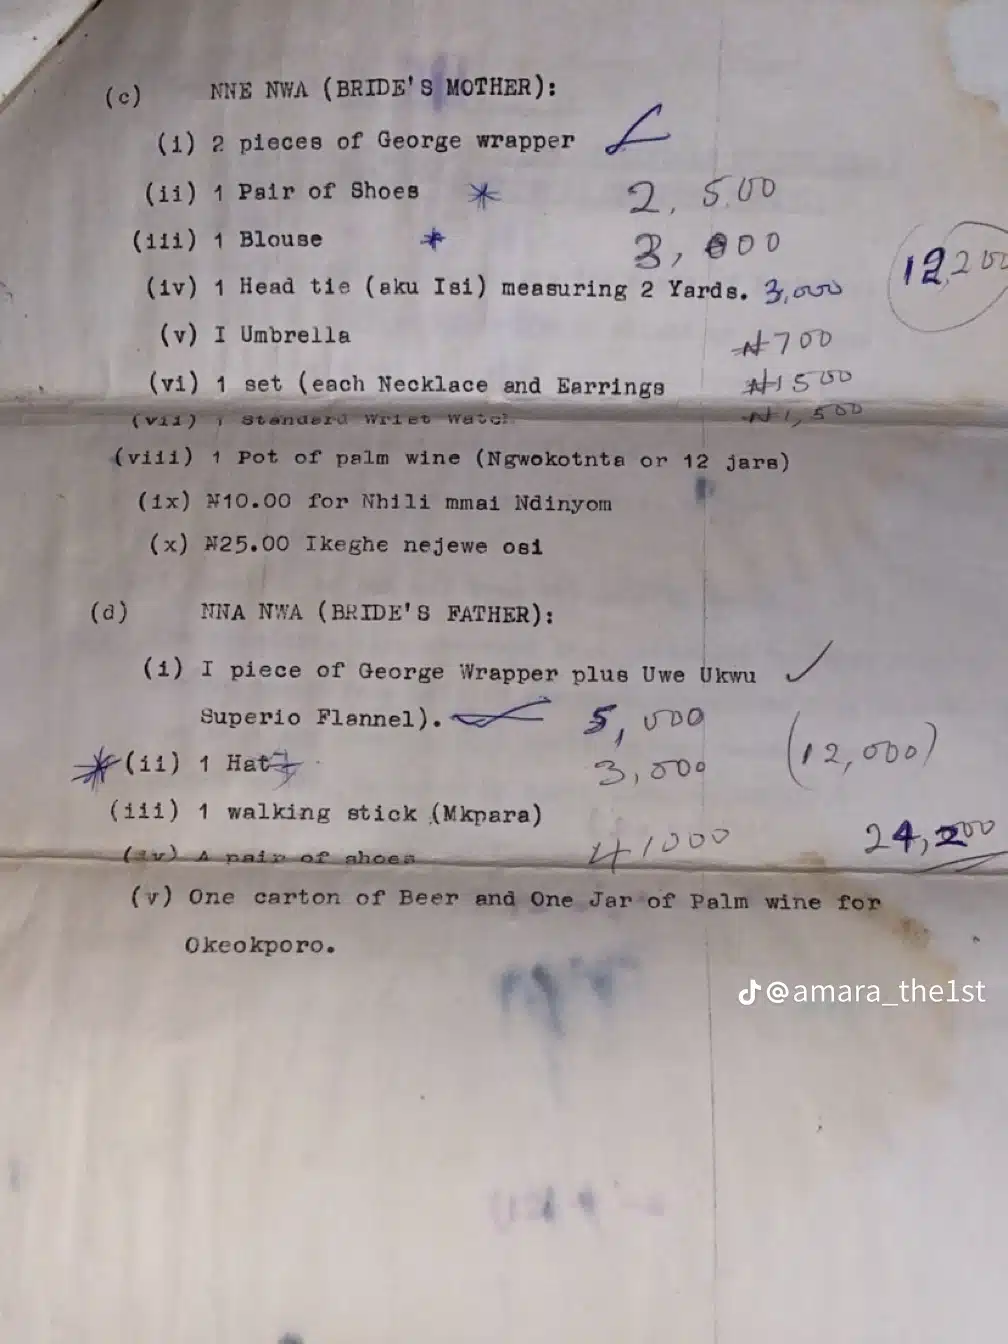 (c) NNE NWA (BRIDE'S MOTHER):
(i) 2 pieces of George wrapper
(ii) 1 Pair of Shoes * 2,500
(iii) 1 Blouse * 3,000
12,200
(iv) 1 Head tie (aku Isi) measuring 2 Yards. 3,000
(v) I Umbrella ₦700
(vi) 1 set (each Necklace and Earrings ₦1500
(vii) 1 Standard Wrist Watch ₦1,500
(viii) 1 Pot of palm wine (Ngwokotnta or 12 jars)
(ix) ₦10.00 for Nhili mmai Ndinyom
(x) ₦25.00 Ikeghe nejewe osi
(d) NNA NWA (BRIDE'S FATHER):
(i) I piece of George Wrapper plus Uwe Ukwu ✓
Superio Flannel). 5,000
(12,000)
* (ii) 1 Hat 3,000
(iii) 1 walking stick (Mkpara)
24,200
(iv) A pair of shoes 4,000
(v) One carton of Beer and One Jar of Palm wine for
Okeokporo.
@amara_the1st